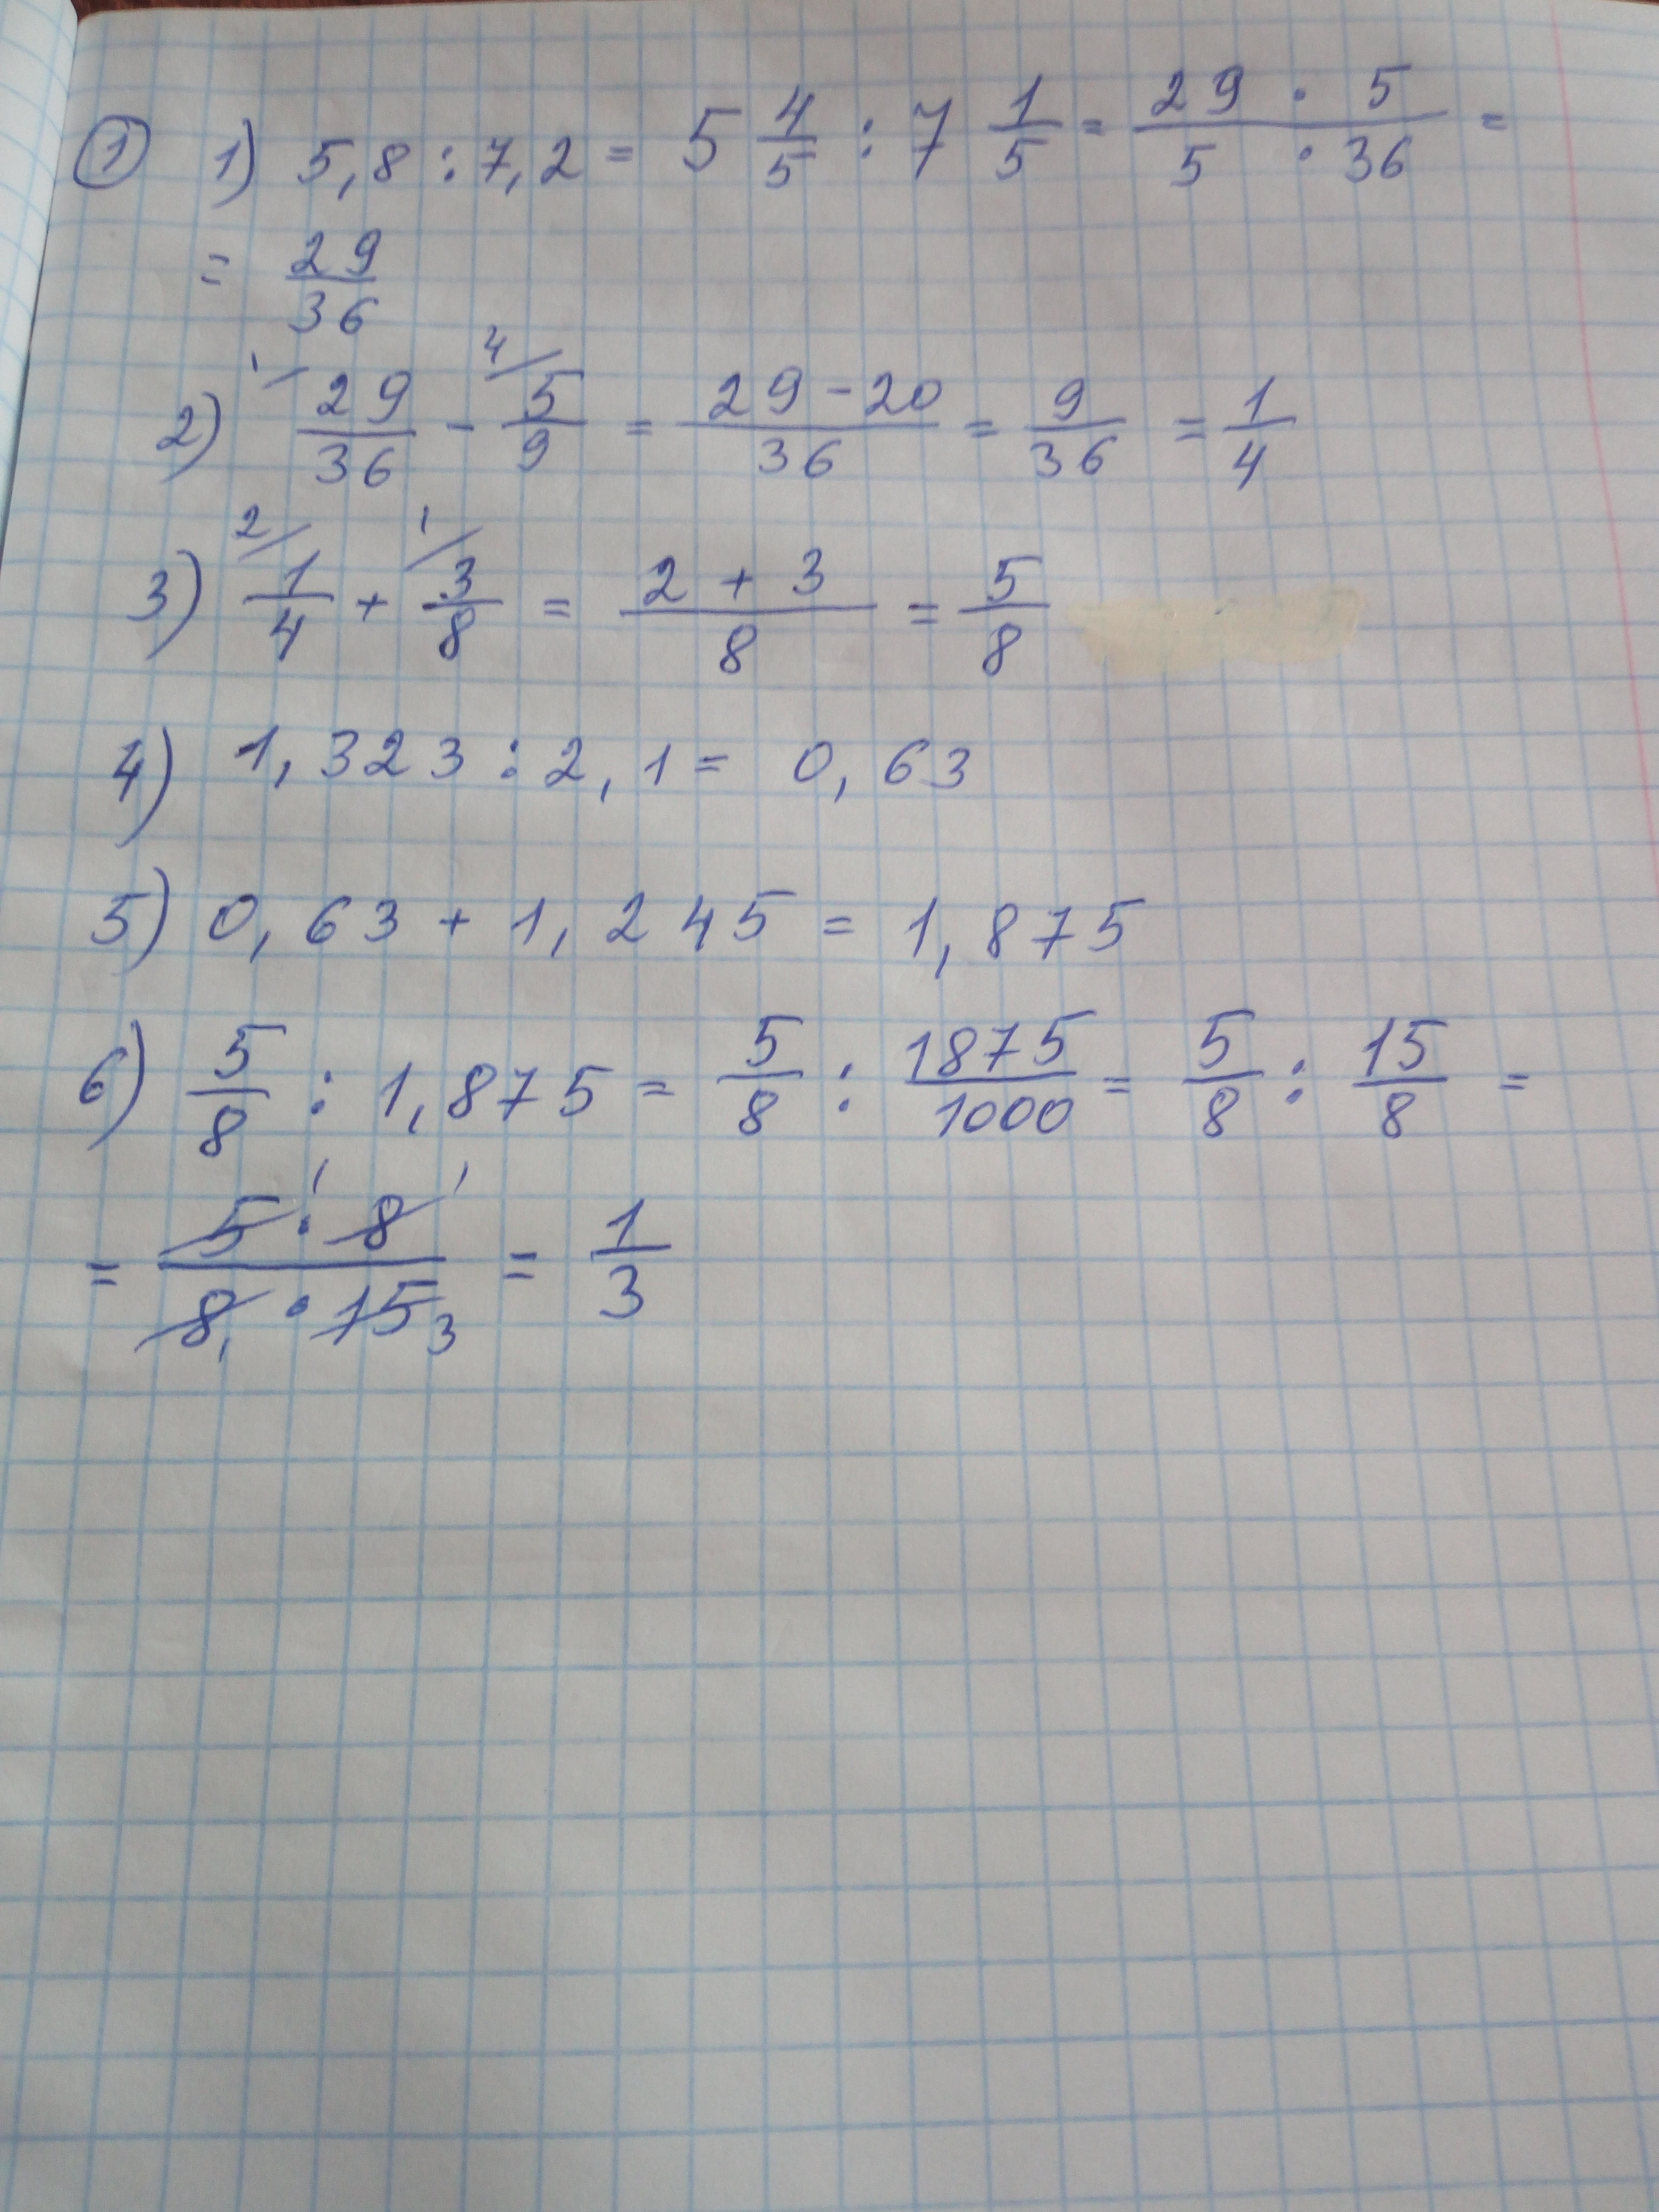 ① 1) 5,8 : 7,2 = 5 4/5 : 7 1/5 = (29 · 5)/(5 · 36) =
= 29/36
2) 1/ 29/36 - 4/ 5/9 = (29 - 20)/36 = 9/36 = 1/4
3) 2/ 1/4 + 1/ 3/8 = (2 + 3)/8 = 5/8
4) 1,323 : 2,1 = 0,63
5) 0,63 + 1,245 = 1,875
6) 5/8 : 1,875 = 5/8 : 1875/1000 = 5/8 : 15/8 =
= (5 1 · 8 1)/(8 1 · 15 3) = 1/3